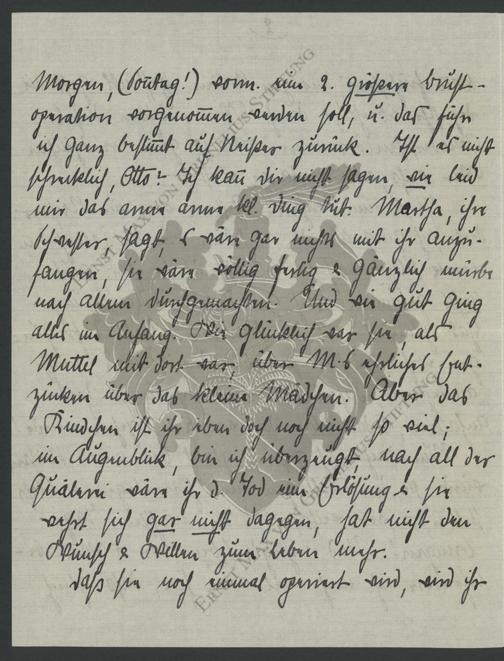 Morgen, (Sonntag!) vorm. eine 2. größere Brust-
operation vorgenommen werden soll, u. das führ
ich ganz bestimmt auf Neißer zurück. Ist es nicht
schrecklich, Otto? Ich kann dir nicht sagen, wie leid
mir das arme arme kl. Ding tut. Martha, ihre
Schwester, sagt, es wäre gar nichts mit ihr anzu-
fangen, sie wäre völlig fertig & gänzlich mürbe
nach allem Durchgemachten. Und wie gut ging
alles im Anfang. Wie glücklich war sie, als
Muttel mit dort war, über M.s ehrliches Ent-
zücken über das kleine Mädchen. Aber das
Kindchen ist ihr eben doch noch nicht so viel;
im Augenblick, bin ich überzeugt, nach all der
Quälerei wäre ihr d. Tod eine Erlösung & sie
wehrt sich gar nicht dagegen, hat nicht den
Wunsch & Willen zum Leben mehr.
daß sie noch einmal operiert wird, wird ihr
ERNST MAX VON GRUNELIUS-STIFTUNG
ERNST MAX VON GRUNELIUS-STIFTUNG